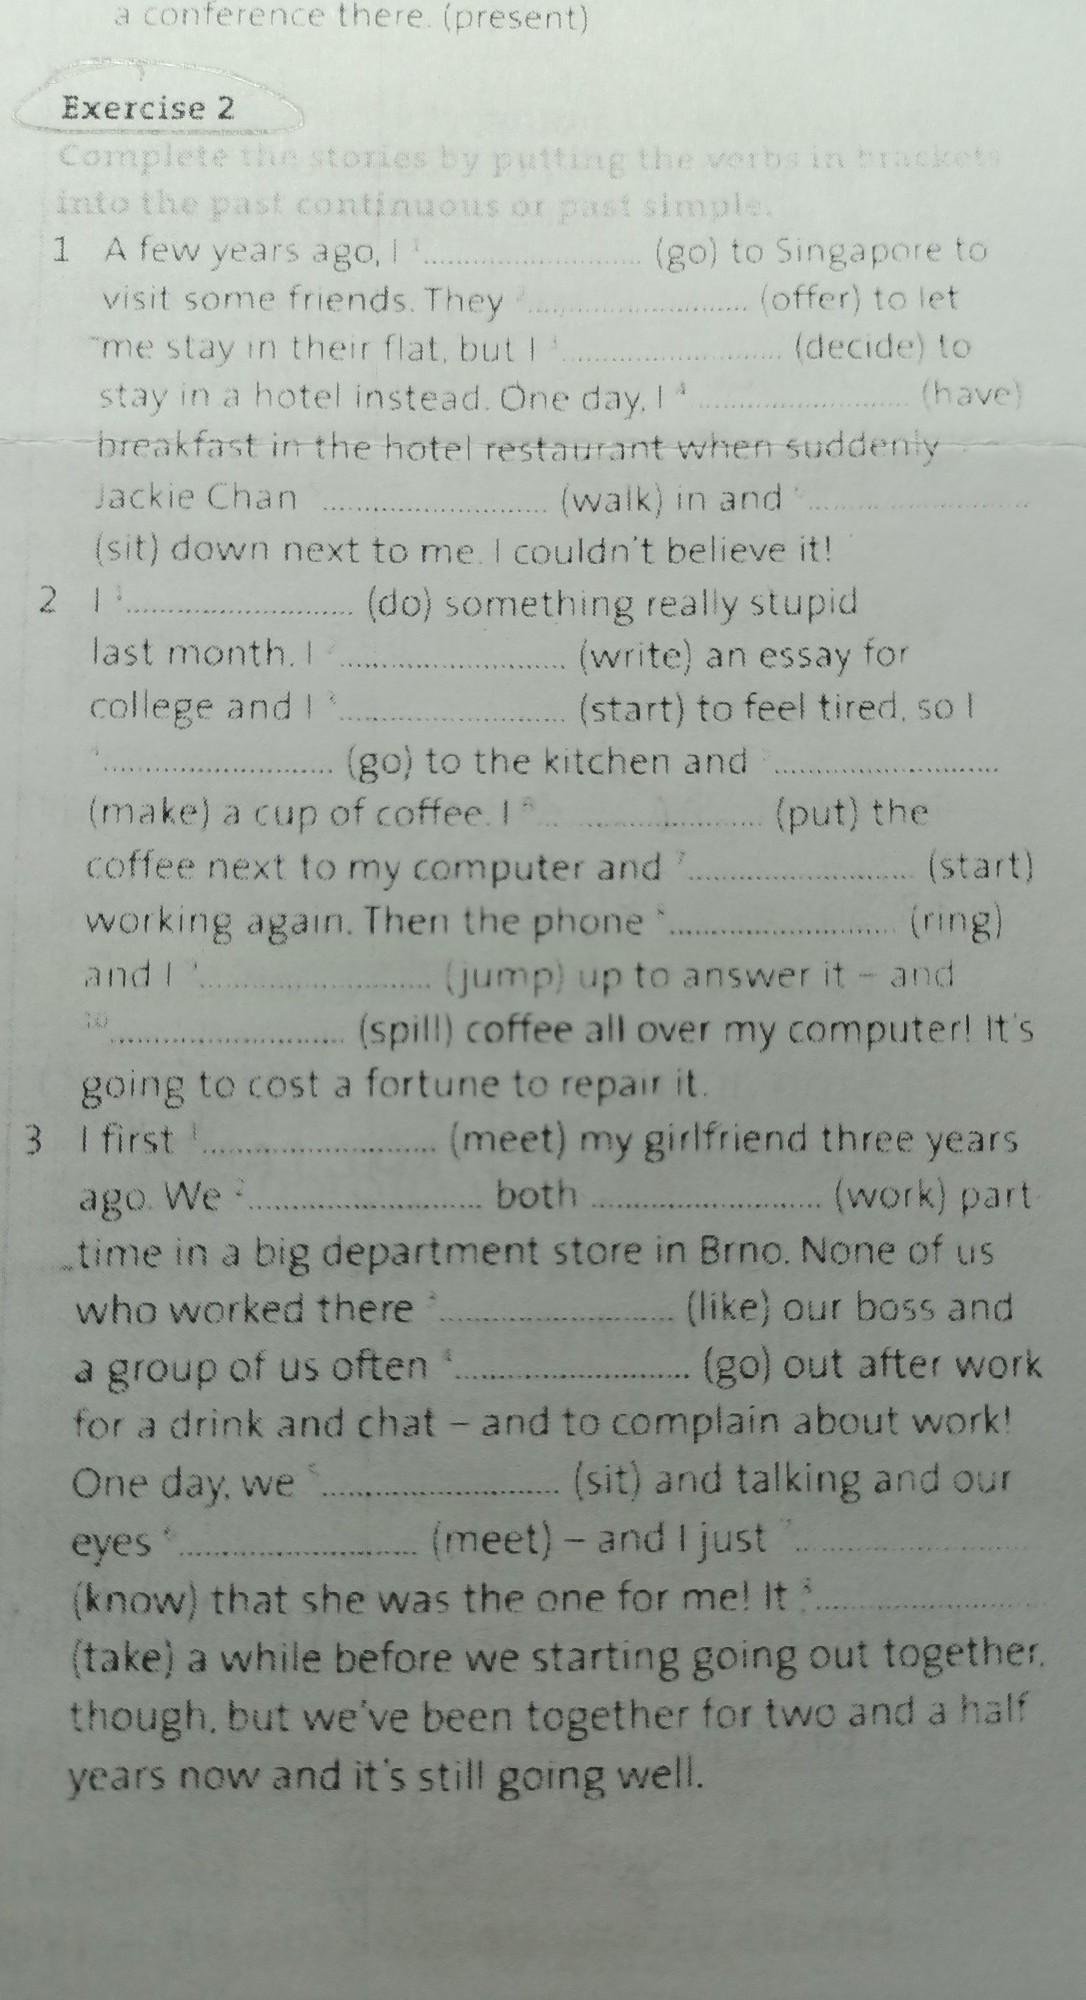 a conference there. (present)
Exercise 2
Complete the stories by putting the verbs in brackets
into the past continuous or past simple.
1 A few years ago, I 1........................ (go) to Singapore to
visit some friends. They 2........................ (offer) to let
me stay in their flat, but I 3........................ (decide) to
stay in a hotel instead. One day, I 4........................ (have)
breakfast in the hotel restaurant when suddenly
Jackie Chan ........................ (walk) in and ........................
(sit) down next to me. I couldn't believe it!
2 I 1........................ (do) something really stupid
last month. I 2........................ (write) an essay for
college and I 3........................ (start) to feel tired, so I
4........................ (go) to the kitchen and ........................
(make) a cup of coffee. I 6........................ (put) the
coffee next to my computer and 7........................ (start)
working again. Then the phone 8........................ (ring)
and I 9........................ (jump) up to answer it – and
10........................ (spill) coffee all over my computer! It's
going to cost a fortune to repair it.
3 I first 1........................ (meet) my girlfriend three years
ago. We 2........................ both ........................ (work) part
time in a big department store in Brno. None of us
who worked there 3........................ (like) our boss and
a group of us often 4........................ (go) out after work
for a drink and chat – and to complain about work!
One day, we 5........................ (sit) and talking and our
eyes 6........................ (meet) – and I just 7........................
(know) that she was the one for me! It 8........................
(take) a while before we starting going out together,
though, but we've been together for two and a half
years now and it's still going well.